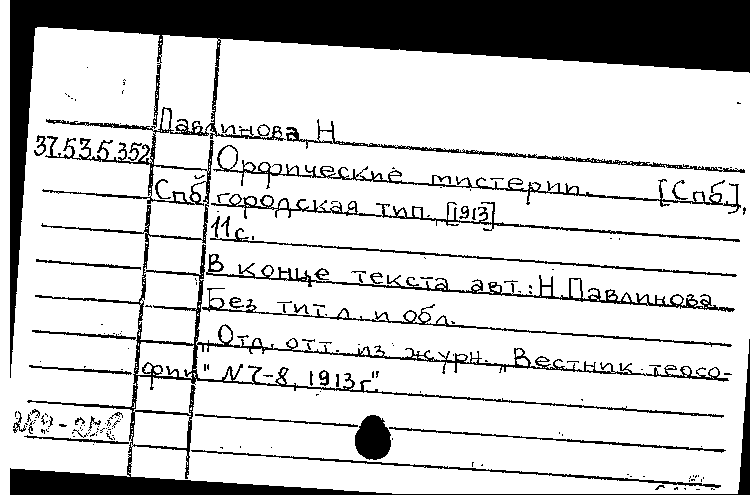 Павлинова, Н
37.53.5.352 Орфические мистерии. [Спб],
Спб. городская тип., [1913]
11с.
В конце текста авт.: Н.Павлинова.
Без тит.л. и обл.
"Отд. отт. из журн. „Вестник теосо-
фии" N 7-8, 1913г."